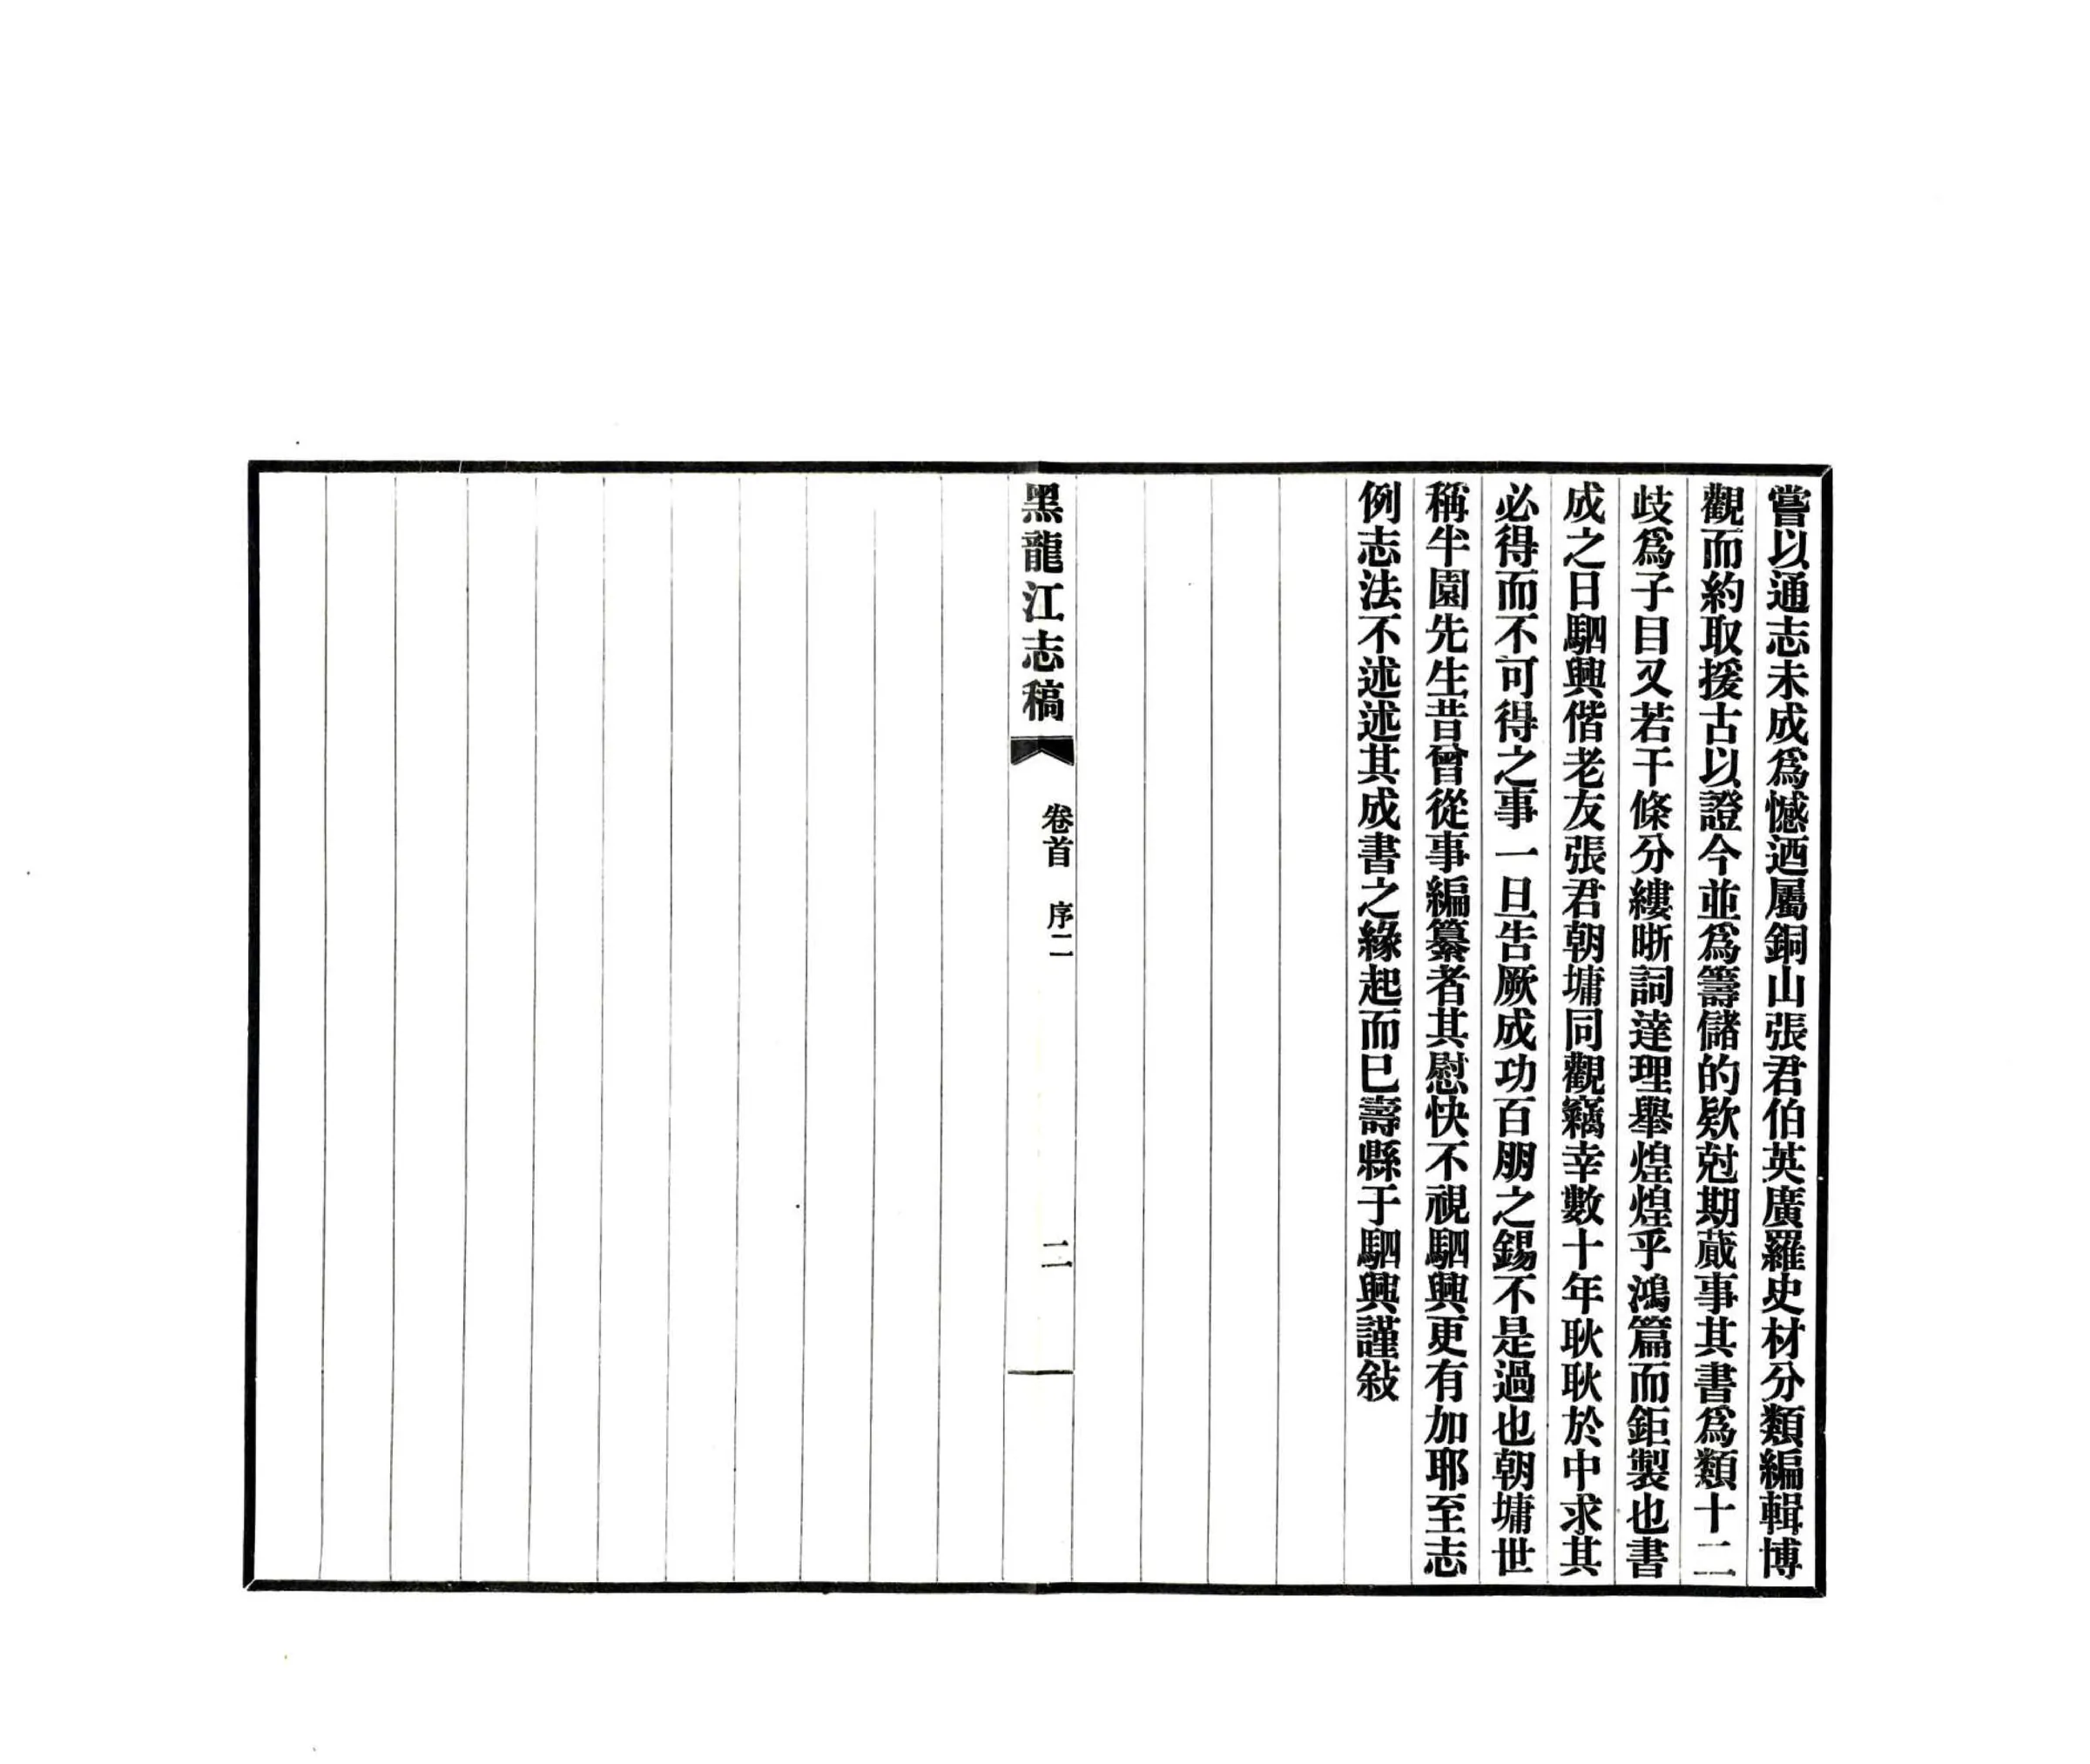 嘗以通志未成爲憾迺屬銅山張君伯英廣羅史材分類編輯博
觀而約取援古以證今並爲籌儲的欵尅期蕆事其書爲類十二
歧爲子目又若干條分縷晰詞達理舉煌煌乎鴻篇而鉅製也書
成之日駟興偕老友張君朝墉同觀竊幸數十年耿耿於中求其
必得而不可得之事一旦告厥成功百朋之錫不是過也朝墉世
稱半園先生昔曾從事編纂者其慰快不視駟興更有加耶至志
例志法不述述其成書之緣起而已壽縣于駟興謹敍
黑龍江志稿
卷首 序二
二